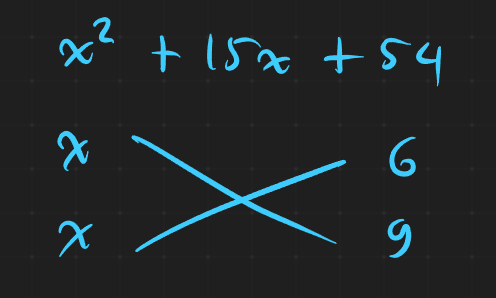 x² + 15x + 54
x 6
x 9